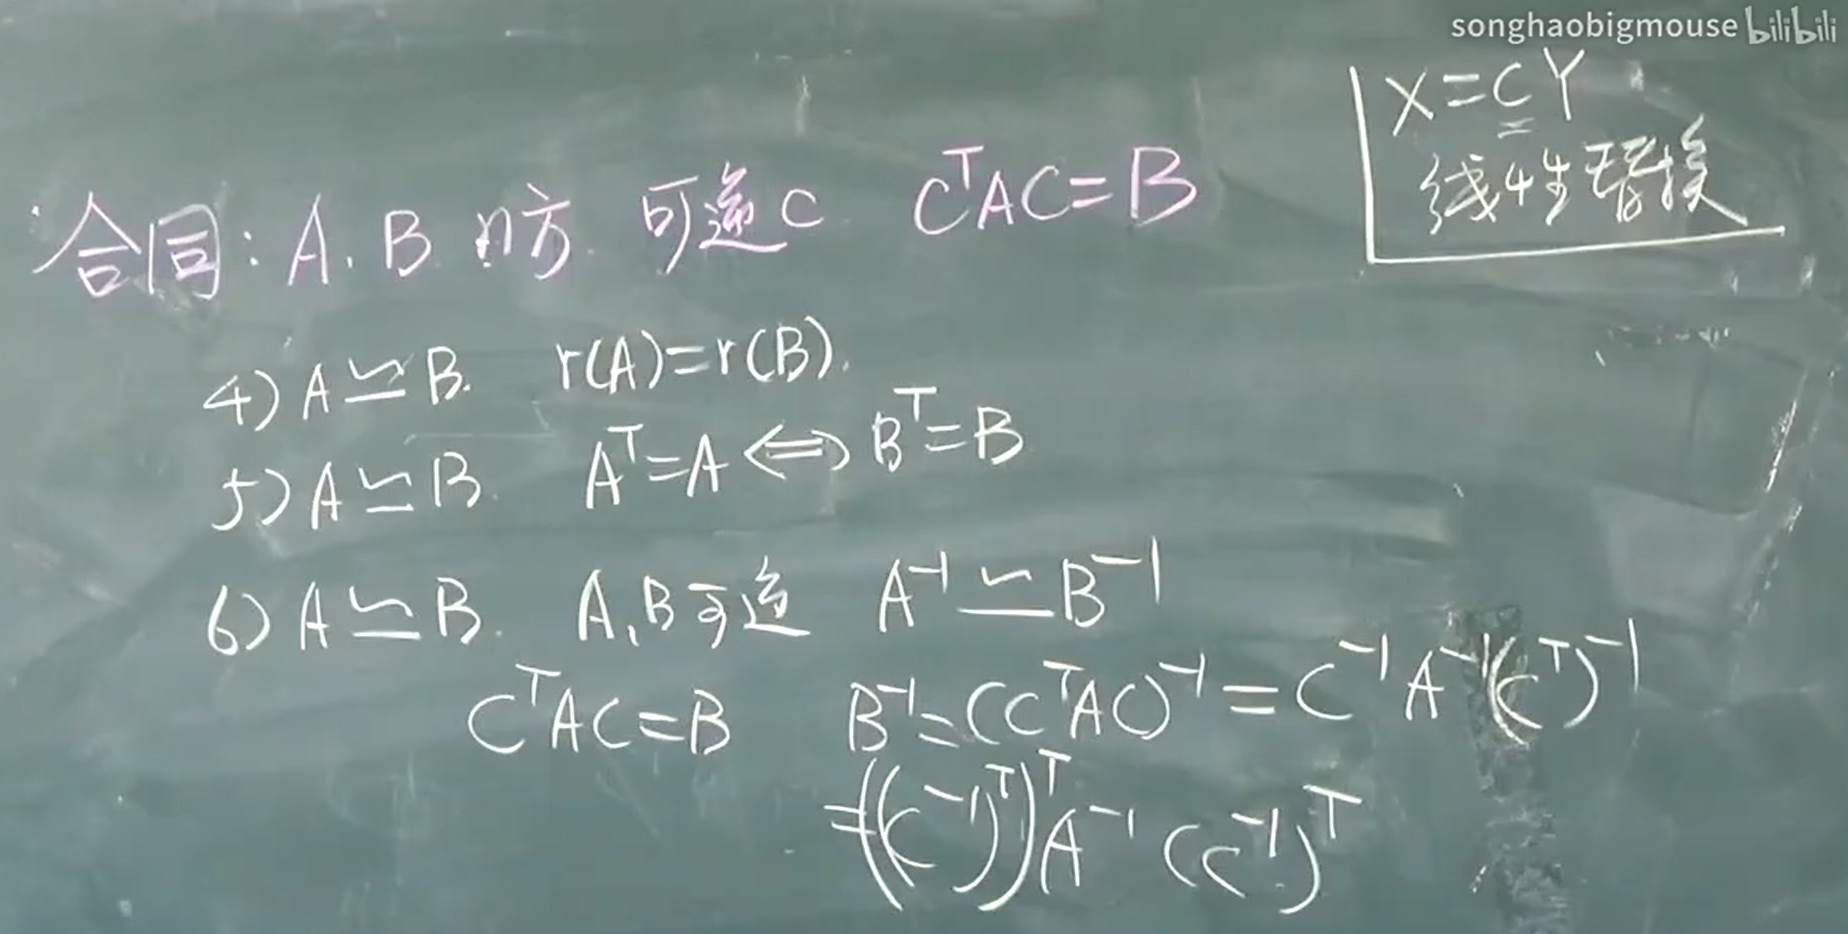 songhaobigmouse bilibili
X=CY
线性替换
合同: A, B n方 可逆C CᵀAC=B
4) A≃B. r(A)=r(B).
5) A≃B. Aᵀ=A ⟺ Bᵀ=B
6) A≃B. A,B可逆 A⁻¹≃B⁻¹
CᵀAC=B B⁻¹=(CᵀAC)⁻¹=C⁻¹A⁻¹(Cᵀ)⁻¹
=((C⁻¹)ᵀ)ᵀA⁻¹(C⁻¹)ᵀ